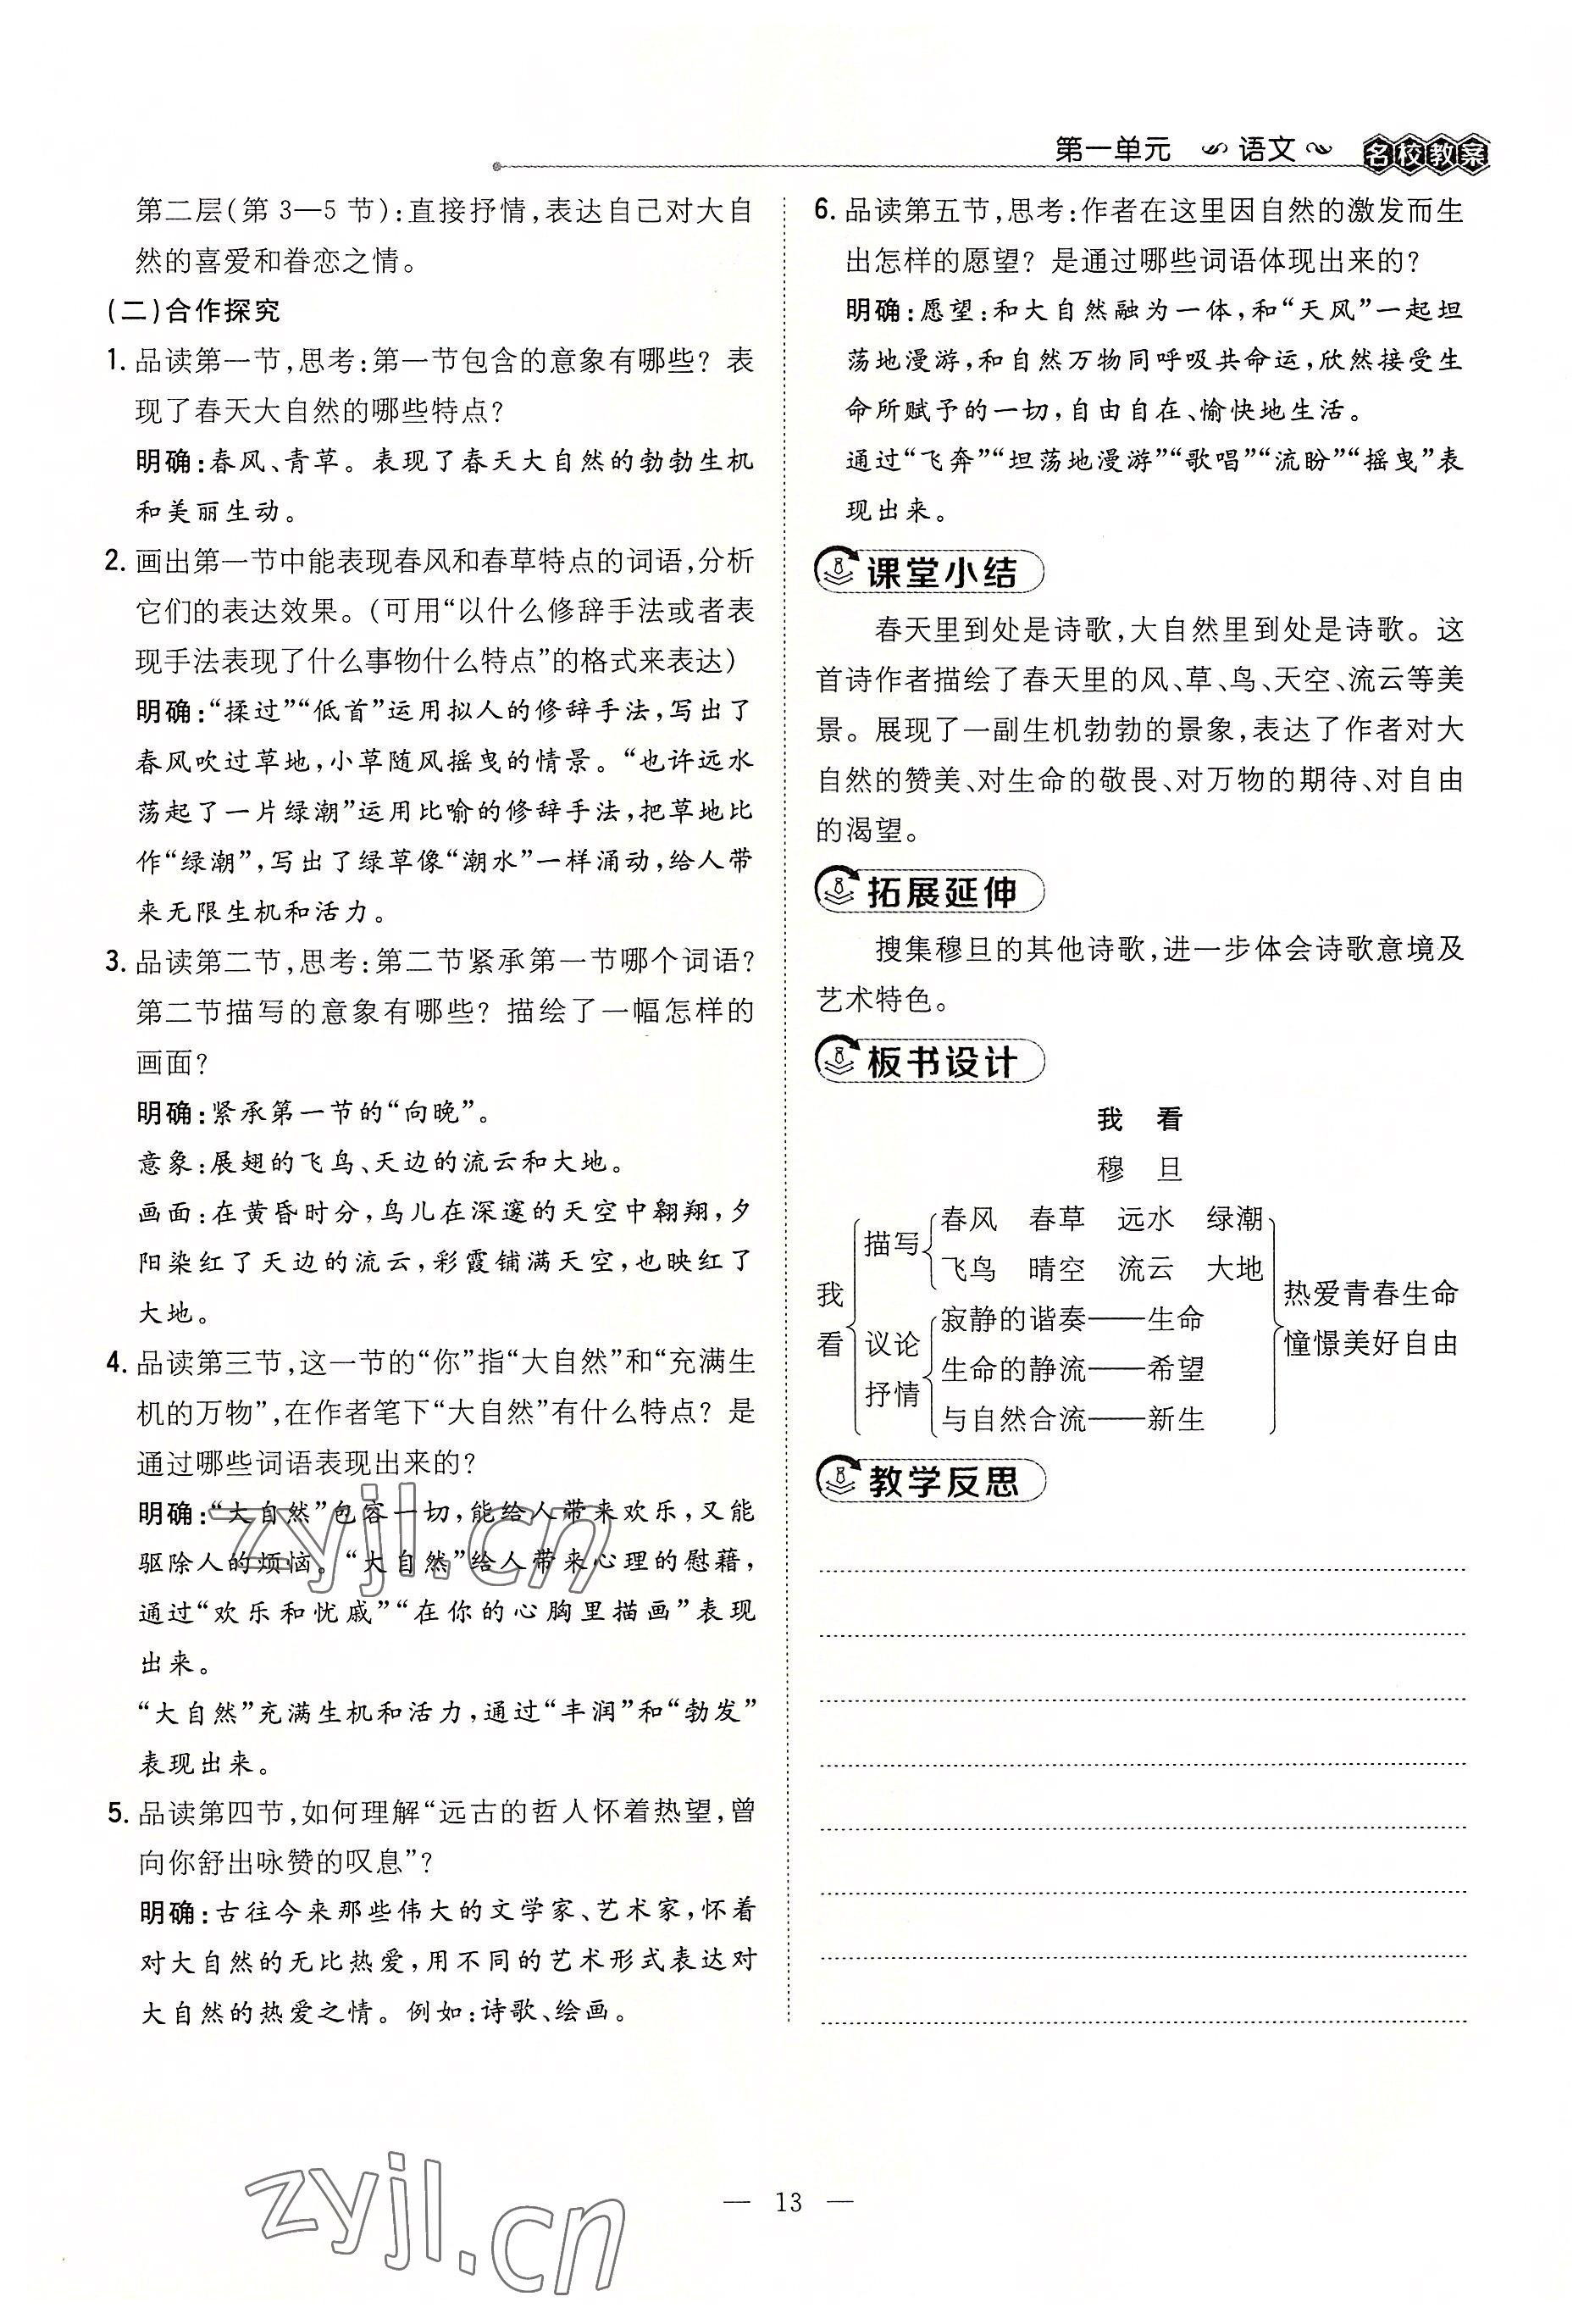 第一单元 语文 名校教案
第二层(第 3—5 节):直接抒情,表达自己对大自
然的喜爱和眷恋之情。
(二)合作探究
1. 品读第一节,思考:第一节包含的意象有哪些? 表
现了春天大自然的哪些特点?
明确:春风、青草。表现了春天大自然的勃勃生机
和美丽生动。
2. 画出第一节中能表现春风和春草特点的词语,分析
它们的表达效果。(可用“以什么修辞手法或者表
现手法表现了什么事物什么特点”的格式来表达)
明确:“揉过”“低首”运用拟人的修辞手法,写出了
春风吹过草地,小草随风摇曳的情景。“也许远水
荡起了一片绿潮”运用比喻的修辞手法,把草地比
作“绿潮”,写出了绿草像“潮水”一样涌动,给人带
来无限生机和活力。
3. 品读第二节,思考:第二节紧承第一节哪个词语?
第二节描写的意象有哪些? 描绘了一幅怎样的
画面?
明确:紧承第一节的“向晚”。
意象:展翅的飞鸟、天边的流云和大地。
画面:在黄昏时分,鸟儿在深邃的天空中翱翔,夕
阳染红了天边的流云,彩霞铺满天空,也映红了
大地。
4. 品读第三节,这一节的“你”指“大自然”和“充满生
机的万物”,在作者笔下“大自然”有什么特点? 是
通过哪些词语表现出来的?
明确:“大自然”包容一切,能给人带来欢乐,又能
驱除人的烦恼。“大自然”给人带来心理的慰藉,
通过“欢乐和忧戚”“在你的心胸里描画”表现
出来。
“大自然”充满生机和活力,通过“丰润”和“勃发”
表现出来。
5. 品读第四节,如何理解“远古的哲人怀着热望,曾
向你舒出咏赞的叹息”?
明确:古往今来那些伟大的文学家、艺术家,怀着
对大自然的无比热爱,用不同的艺术形式表达对
大自然的热爱之情。例如:诗歌、绘画。
6. 品读第五节,思考:作者在这里因自然的激发而生
出怎样的愿望? 是通过哪些词语体现出来的?
明确:愿望:和大自然融为一体,和“天风”一起坦
荡地漫游,和自然万物同呼吸共命运,欣然接受生
命所赋予的一切,自由自在、愉快地生活。
通过“飞奔”“坦荡地漫游”“歌唱”“流盼”“摇曳”表
现出来。
课堂小结
春天里到处是诗歌,大自然里到处是诗歌。这
首诗作者描绘了春天里的风、草、鸟、天空、流云等美
景。展现了一副生机勃勃的景象,表达了作者对大
自然的赞美、对生命的敬畏、对万物的期待、对自由
的渴望。
拓展延伸
搜集穆旦的其他诗歌,进一步体会诗歌意境及
艺术特色。
板书设计
我 看
穆 旦
我看
描写
春风 春草 远水 绿潮
飞鸟 晴空 流云 大地
议论
抒情
寂静的谐奏——生命
生命的静流——希望
与自然合流——新生
热爱青春生命
憧憬美好自由
教学反思
zyjl.cn
zyjl.cn
— 13 —